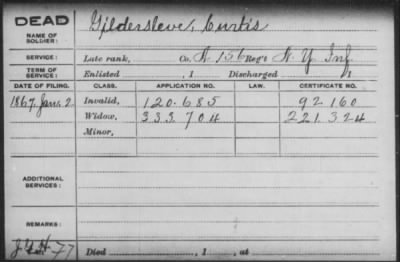 DEAD
NAME OF SOLDIER: Gildersleve, Curtis
SERVICE: Late rank, Co. A. 156 Reg't N. Y. Inf.
TERM OF SERVICE: Enlisted , 1 Discharged , 1
DATE OF FILING. CLASS. APPLICATION NO. LAW. CERTIFICATE NO.
1867. Jan. 2. Invalid, 120.685 92 160
Widow, 333 704 221 324
Minor,
ADDITIONAL SERVICES:
REMARKS:
77 Died , 1 , at